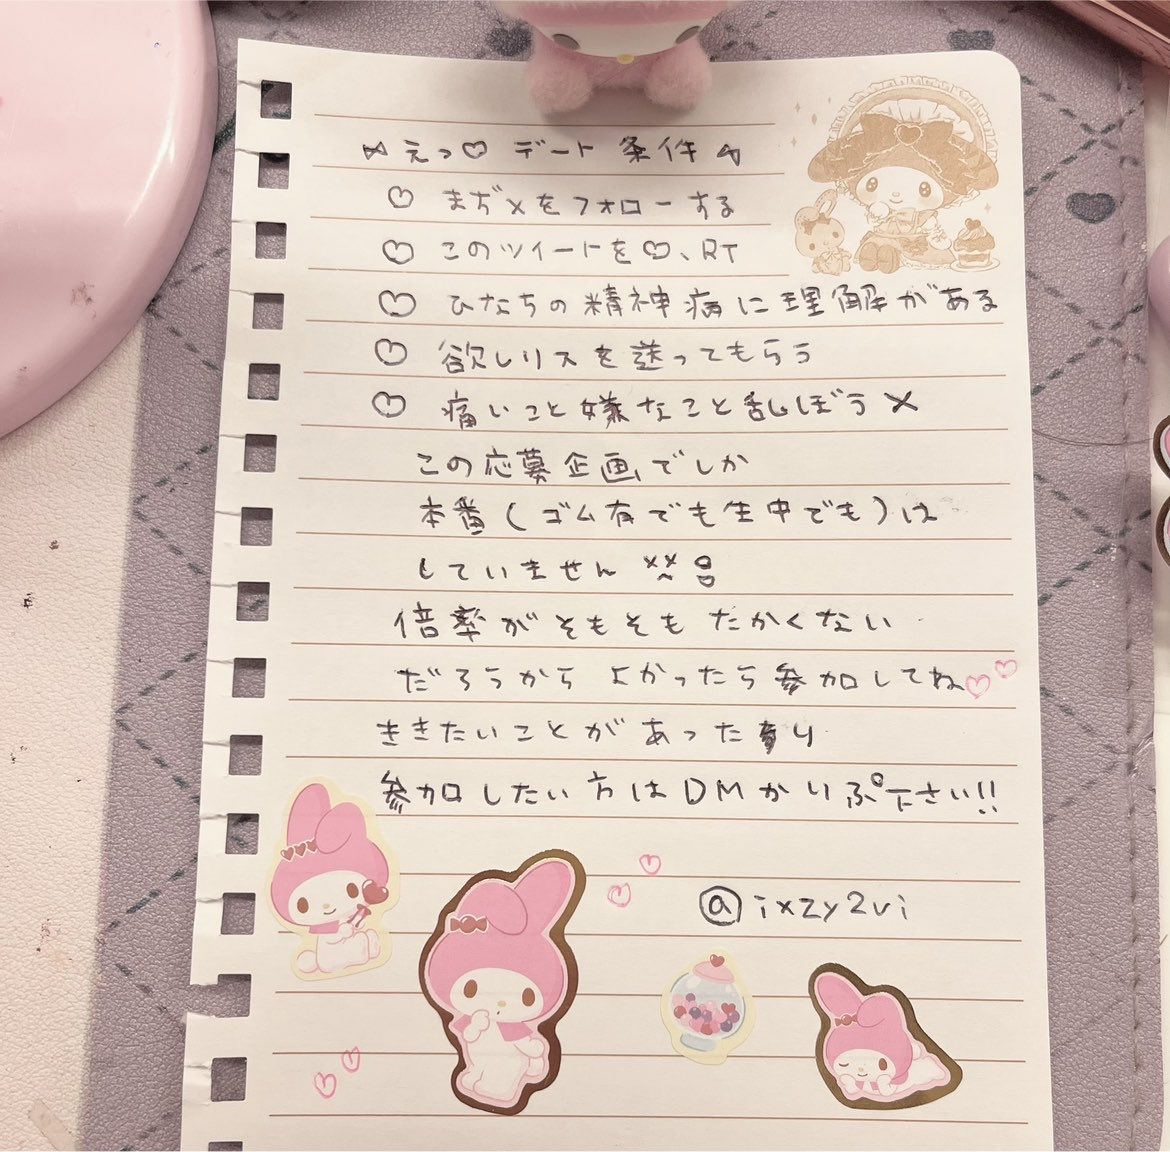 えっ♡ デート 条件
♡ まず×をフォローする
♡ このツイートを♡、RT
♡ ひなちの精神病に理解がある
♡ 欲しリスを送ってもらう
♡ 痛いこと嫌なこと乱ぼう×
この応募企画でしか
本番(ゴム有でも生中でも)は
していません
倍率がそもそもたかくない
だろうから よかったら参加してね♡♡
ききたいことがあったり
参加したい方はDMかりぷ下さい!!
@ixzy2vi